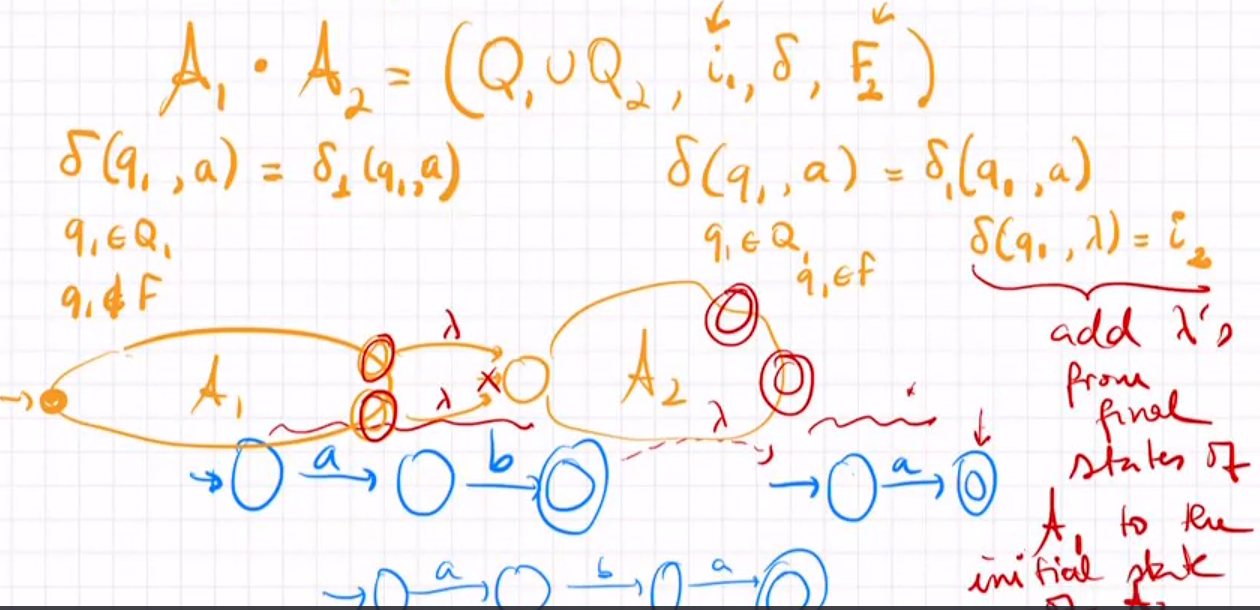 A₁ · A₂ = (Q₁ ∪ Q₂, i₁, δ, F₂)
δ(q₁, a) = δ₁(q₁, a)
q₁ ∈ Q₁
q₁ ∉ F
δ(q₁, a) = δ₁(q₁, a)
q₁ ∈ Q₁
q₁ ∈ F
δ(q₁, λ) = i₂
add λ's
from
final
states of
A₁ to the
initial state
A₁
λ
λ
A₂
λ
a b
a
a b a